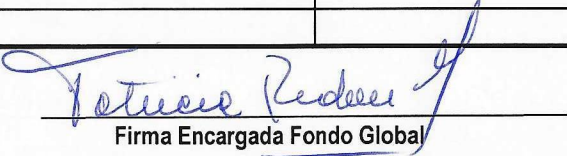 Patricia
Firma Encargada Fondo Global